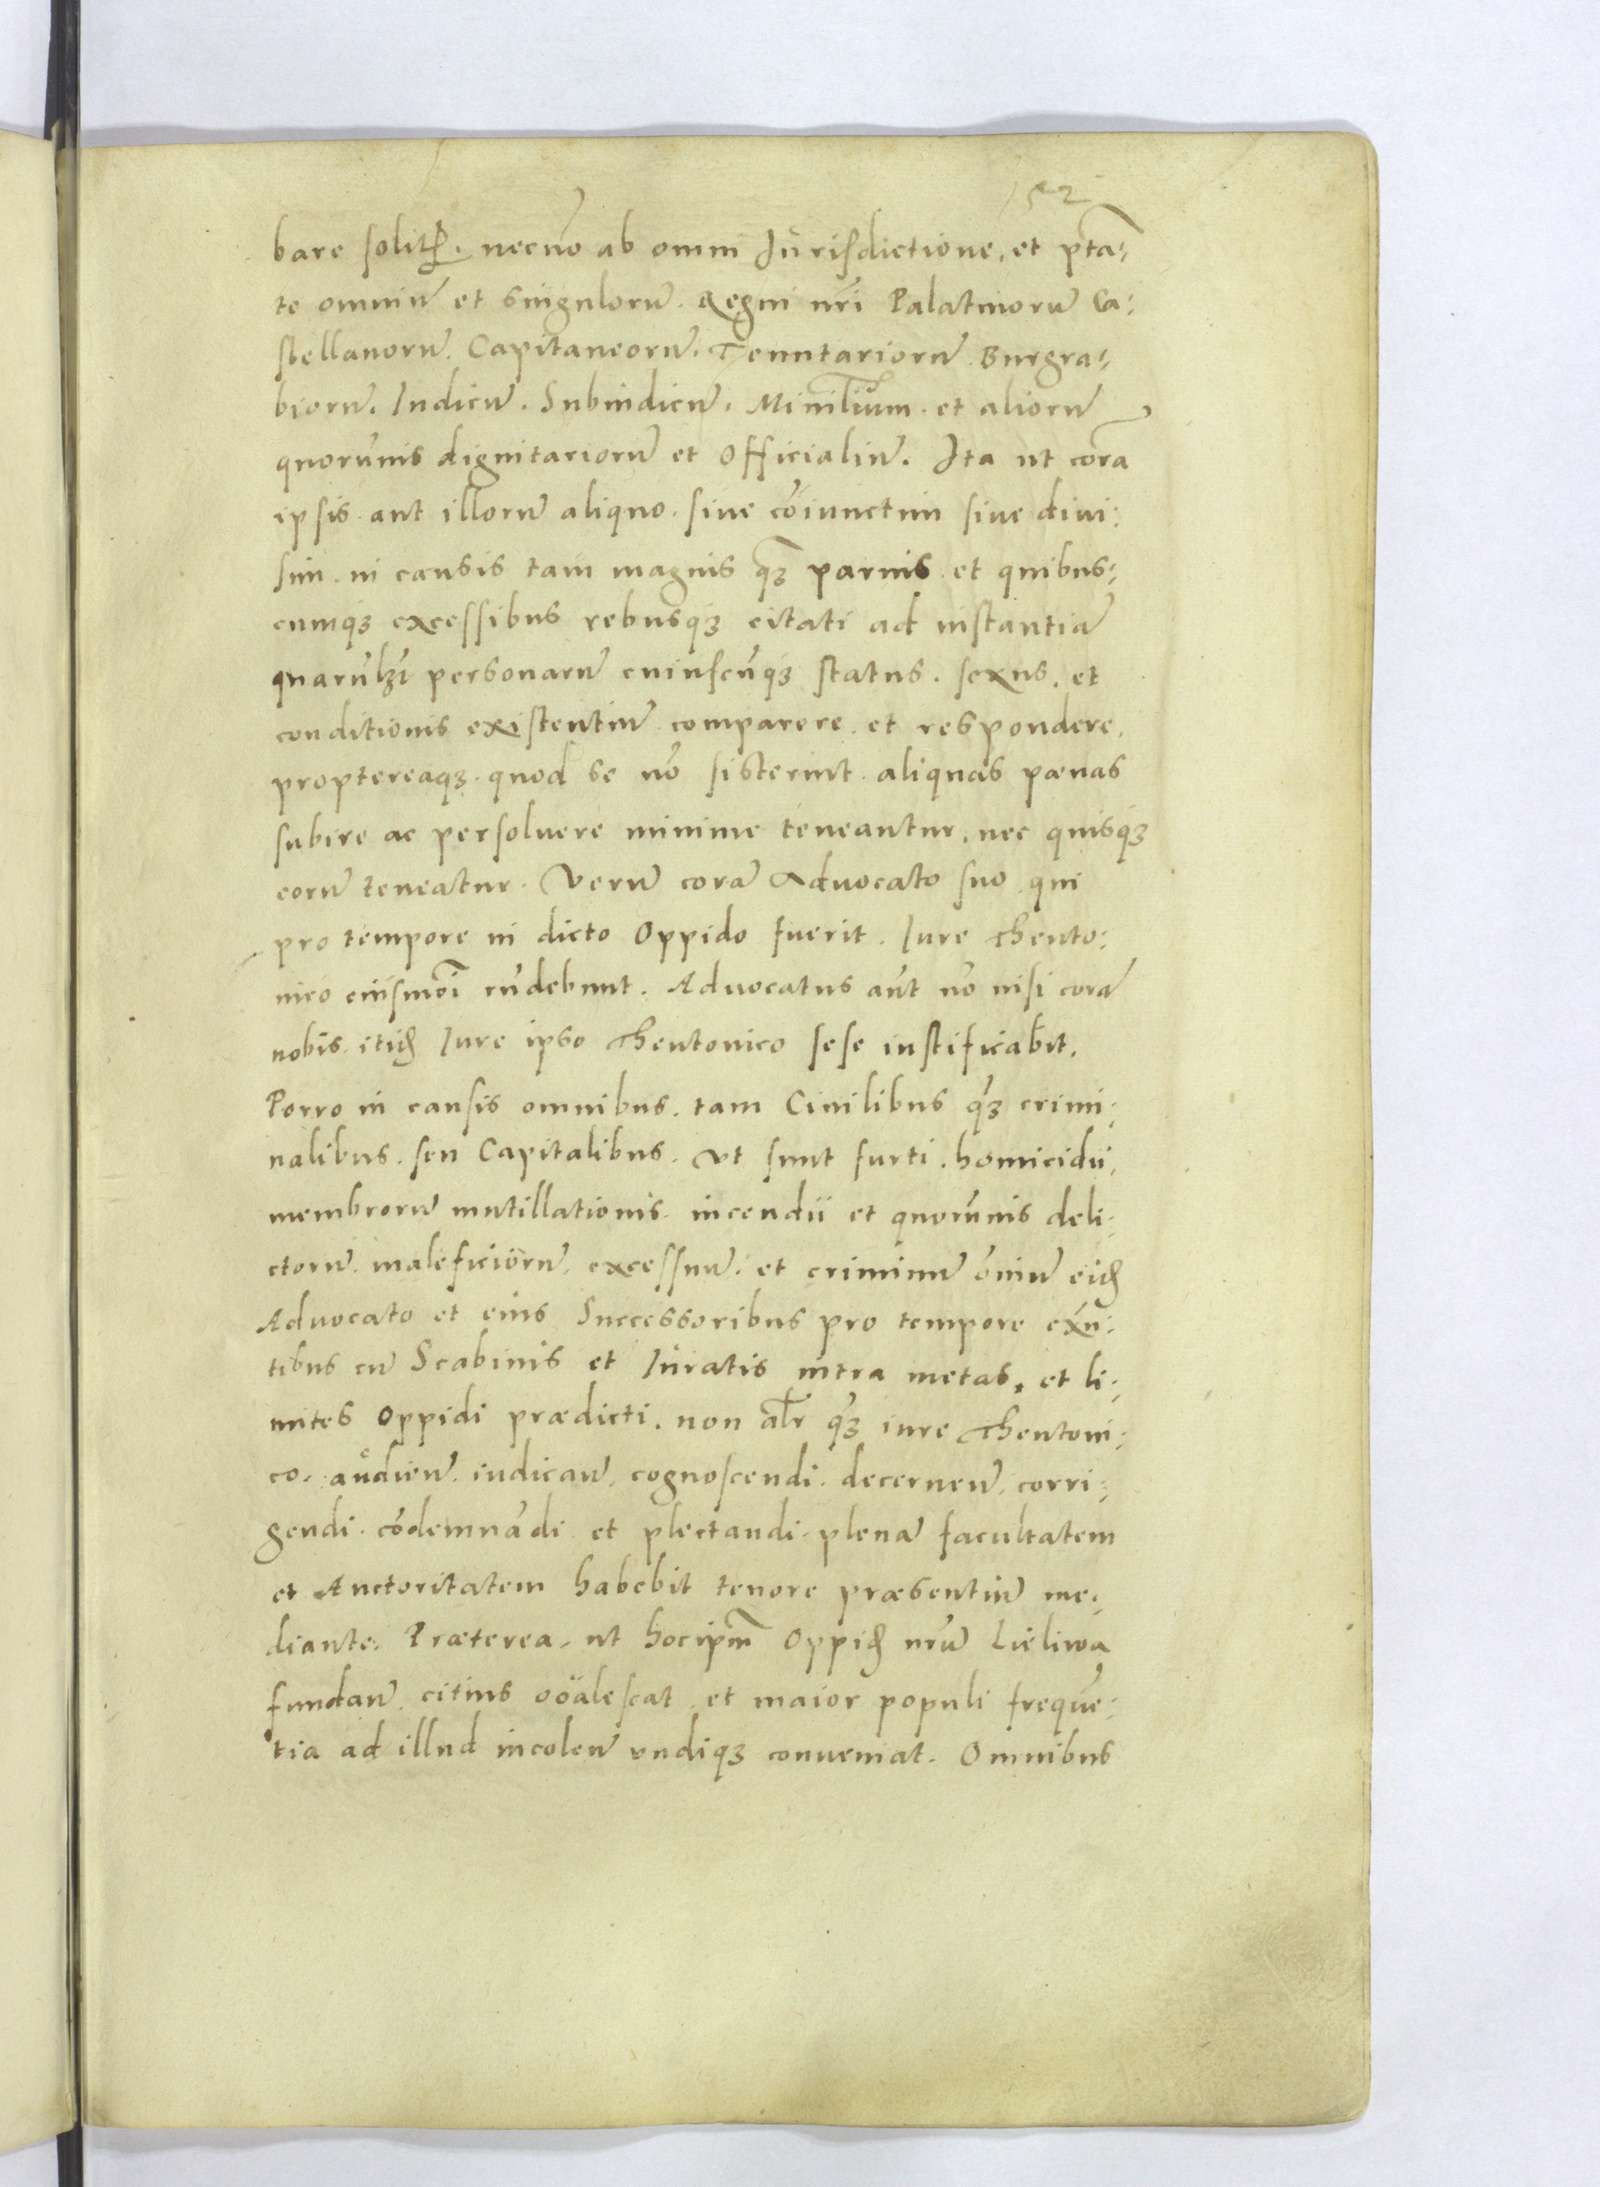 152
bare solitꝝ. necnō ab omni Iurisdictione, et ptā-
te omniū et singulorū Regni nrī Palatinorū Ca-
stellanorū. Capitaneorū. Tenutariorū Burgra-
biorū. Iudicū. Subiudicū. Minilium. et aliorū
quorūuis dignitariorū et Officialiū. Ita ut corā
ipsis aut illorū aliquo. siue cōiunctim siue diui-
sim. in causis tam magnis qꝫ paruis et quibus-
cumqꝫ excessibus rebusqꝫ citati ad instantiā
quarūlꝫt personarū cuiuscūqꝫ status. sexus. et
conditionis existentiū comparere et respondere.
proptereaqꝫ. quod se nō sisterint aliquas pœnas
subire ac persoluere minime teneantur. nec quisqꝫ
eorū teneatur. Verū corā Aduocato suo qui
pro tempore in dicto Oppido fuerit. Iure Theuto-
nico eiusmōi rn̄debunt. Aduocatus aūt nō nisi corā
nobis itid. Iure ipso Theutonico sese iustificabit.
Porro in causis omnibus. tam Ciuilibus qꝫ crimi-
nalibus. seu Capitalibus. Vt sunt furti. homicidii,
membrorū mutillationis. incendii et quorūuis deli-
ctorū. maleficiorū. excessuū. et criminū ōniū eid.
Aduocato et eius Successoribus pro tempore exn̄-
tibus cū Scabinis et Iuratis intra metas, et li-
mites Oppidi prædicti. non alr qꝫ iure Theutoni-
co. audien̄. iudican̄. cognoscendi. decernen̄. corri-
gendi. cōdemnādi et plectandi. plenā facultatem
et Auctoritatem habebit tenore præsentiū me-
diante. Præterea. ut hocipm̄ Oppid. nrū Lieliwa
fundan̄. citius coalescat et maior populi frequē-
tia ad illud incolen̄ undiqꝫ conueniat. Omnibus